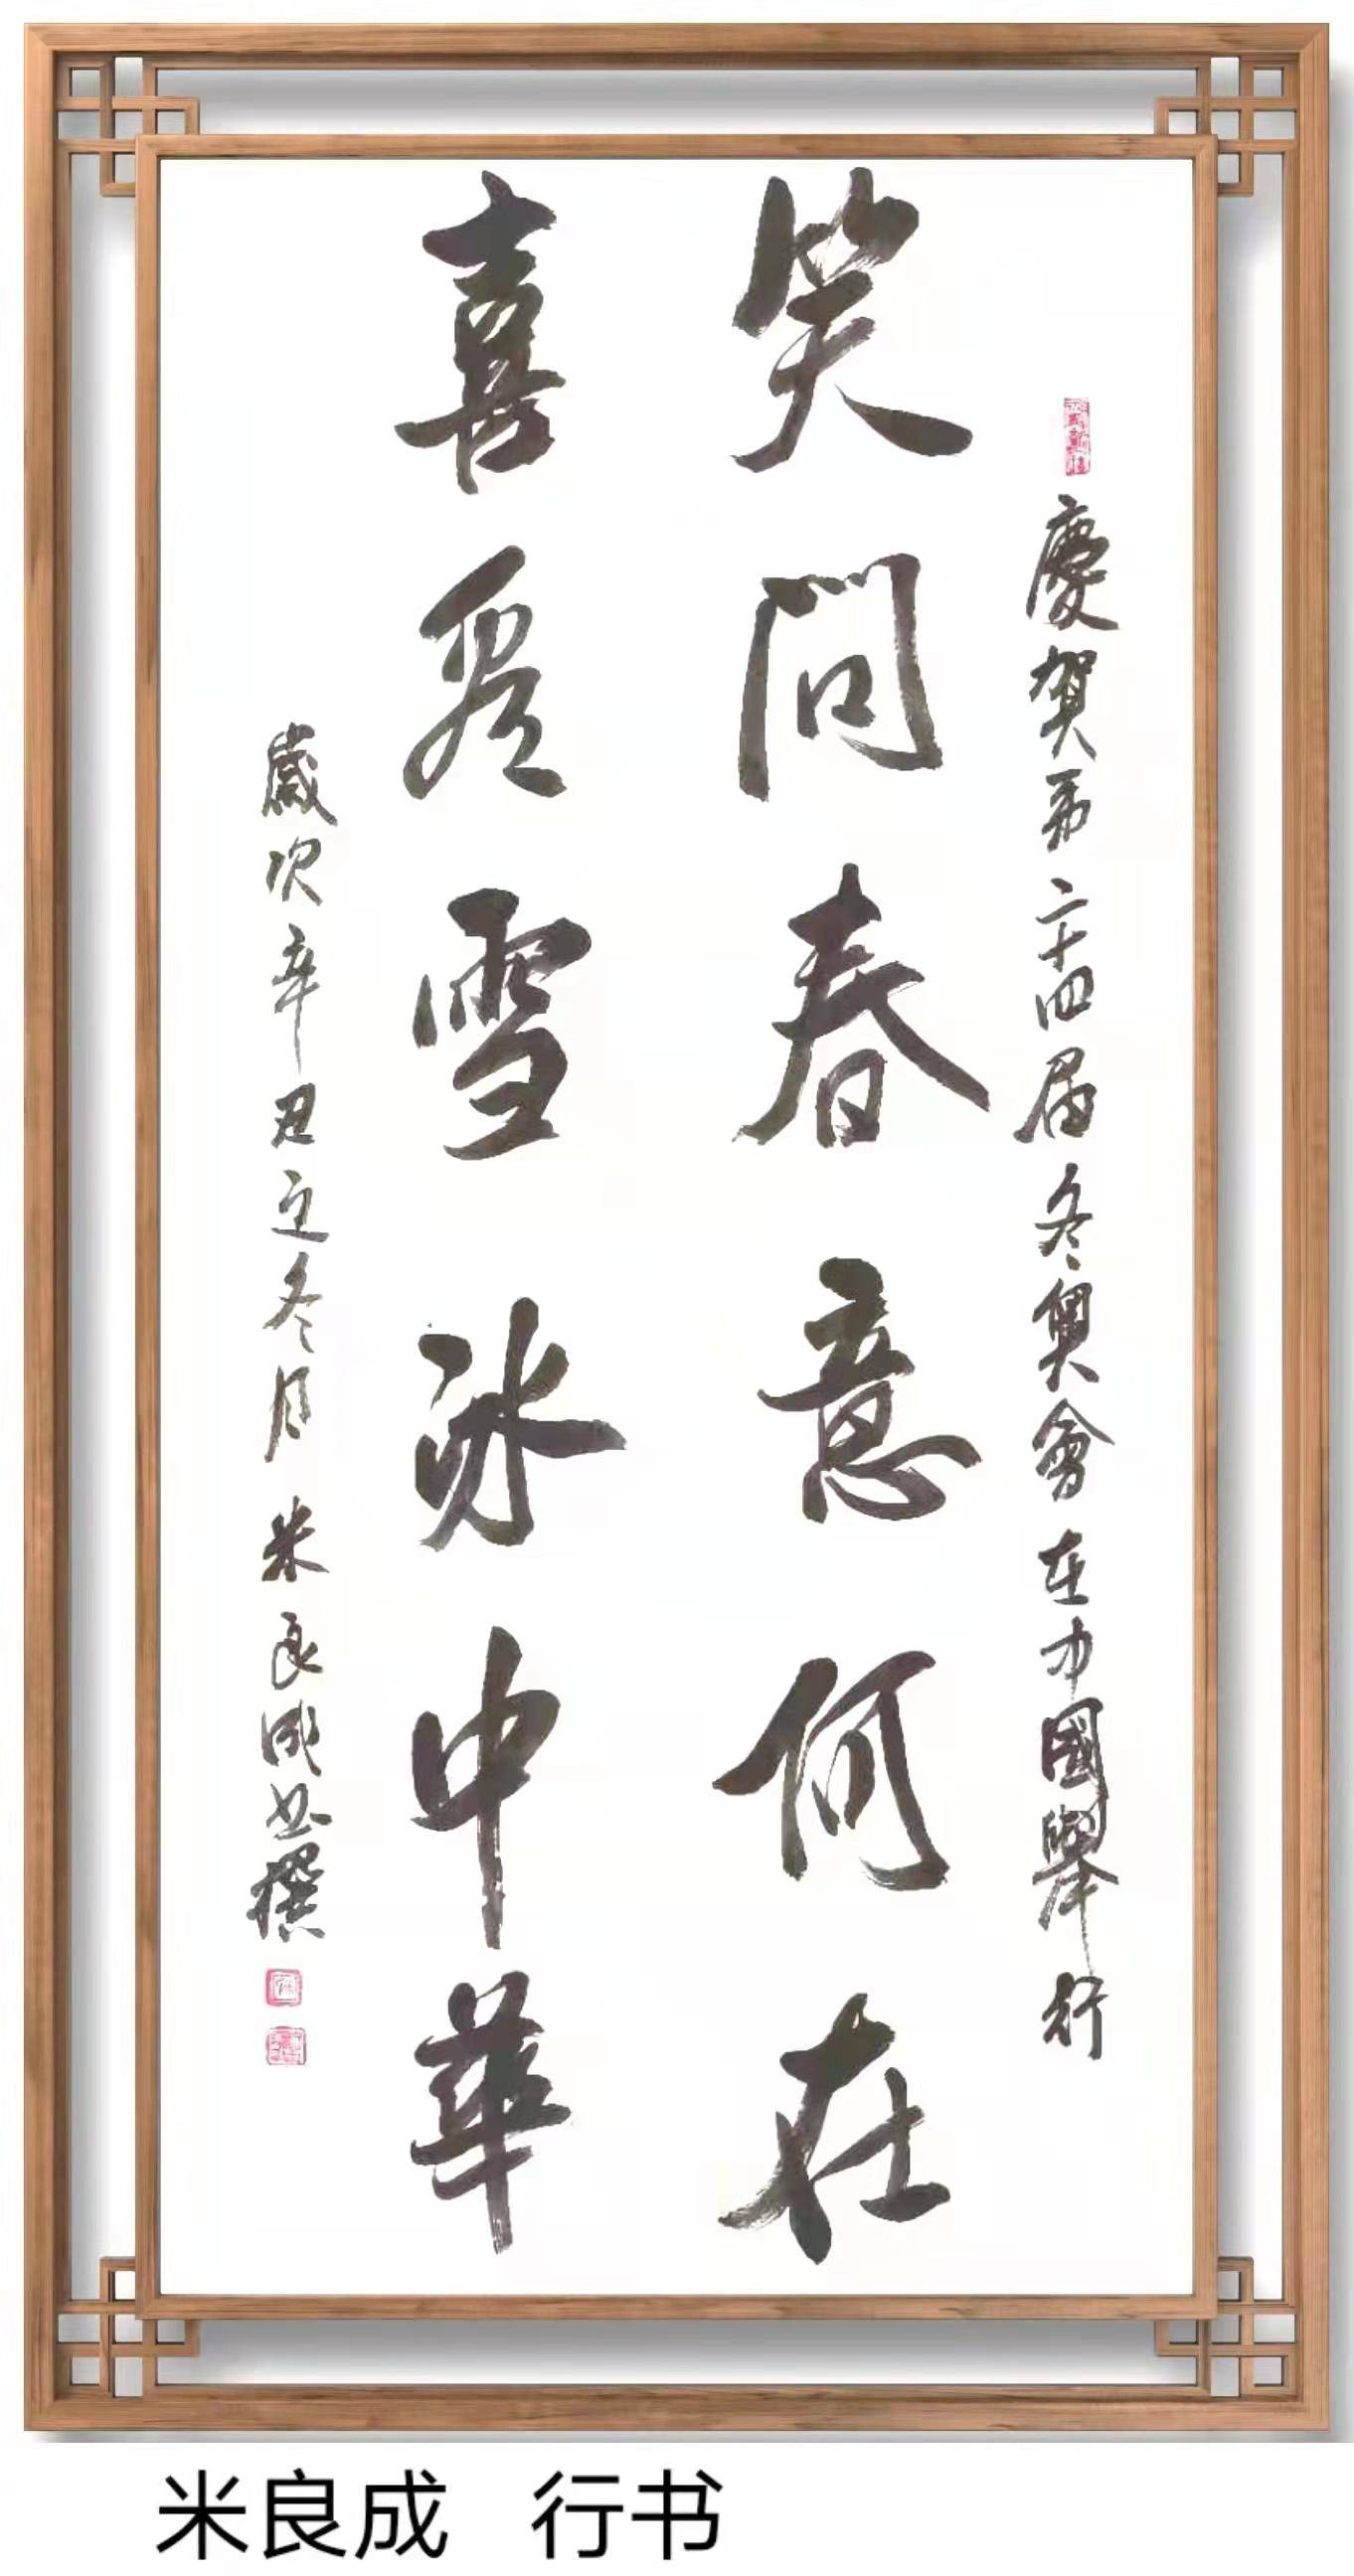 慶賀第二十四届冬奧會在中國舉行
笑問春意何在
喜雪冰中華
歲次辛丑之冬月 米良成撰
米良成 行书